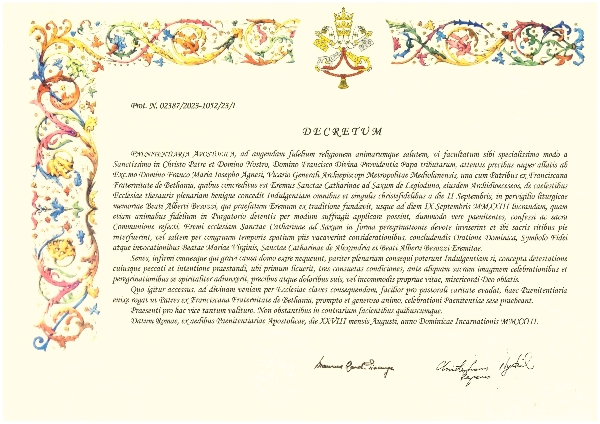 Prot. N. 02387/2023-1052/23/I
DECRETUM
PAENITENTIARIA APOSTOLICA, ad augendam fidelium religionem animarumque salutem, vi facultatum sibi specialissimo modo a
Sanctissimo in Christo Patre et Domino Nostro, Domino Francisco Divina Providentia Papa tributarum, attentis precibus nuper allatis ab
Exc.mo Domino Franco Maria Iosepho Agnesi, Vicario Generali Archiepiscopi Metropolitae Mediolanensis, una cum Patribus ex Franciscana
Fraternitate de Bethania, quibus concreditus est Eremus Sanctae Catharinae ad Saxum de Legioduno, eiusdem Archidioeceseos, de caelestibus
Ecclesiae thesauris plenariam benigne concedit Indulgentiam omnibus et singulis christifidelibus a die II Septembris, in pervigilio liturgicae
memoriae Beati Alberti Besozzi, qui praefatum Eremum ex traditione fundavit, usque ad diem IX Septembris MMXXIII lucrandam, quam
etiam animabus fidelium in Purgatorio detentis per modum suffragii applicare possint, dummodo vere paenitentes, confessi ac sacra
Communione refecti, Eremi ecclesiam Sanctae Catharinae ad Saxum in forma peregrinationis devote inviserint et ibi sacris ritibus pie
interfuerint, vel saltem per congruum temporis spatium piis vacaverint considerationibus, concludendis Oratione Dominica, Symbolo Fidei
atque invocationibus Beatae Mariae Virginis, Sanctae Catharinae de Alexandria et Beati Alberti Besozzi Eremitae.
Senes, infirmi omnesque qui gravi causa domo exire nequeunt, pariter plenariam consequi poterunt Indulgentiam si, concepta detestatione
cuiusque peccati et intentione praestandi, ubi primum licuerit, tres consuetas condiciones, ante aliquam sacram imaginem celebrationibus et
peregrinationibus se spiritaliter adiunxerint, precibus atque doloribus suis, vel incommodis propriae vitae, misericordi Deo oblatis.
Quo igitur accessus, ad divinam veniam per Ecclesiae claves consequendam, facilior pro pastorali caritate evadat, haec Paenitentiaria
enixe rogat ut Patres ex Franciscana Fraternitate de Bethania, prompto et generoso animo, celebrationi Paenitentiae sese praebeant.
Praesenti pro hac vice tantum valituro. Non obstantibus in contrarium facientibus quibuscumque.
Datum Romae, ex aedibus Paenitentiariae Apostolicae, die XXVIII mensis Augusti, anno Dominicae Incarnationis MMXXIII.